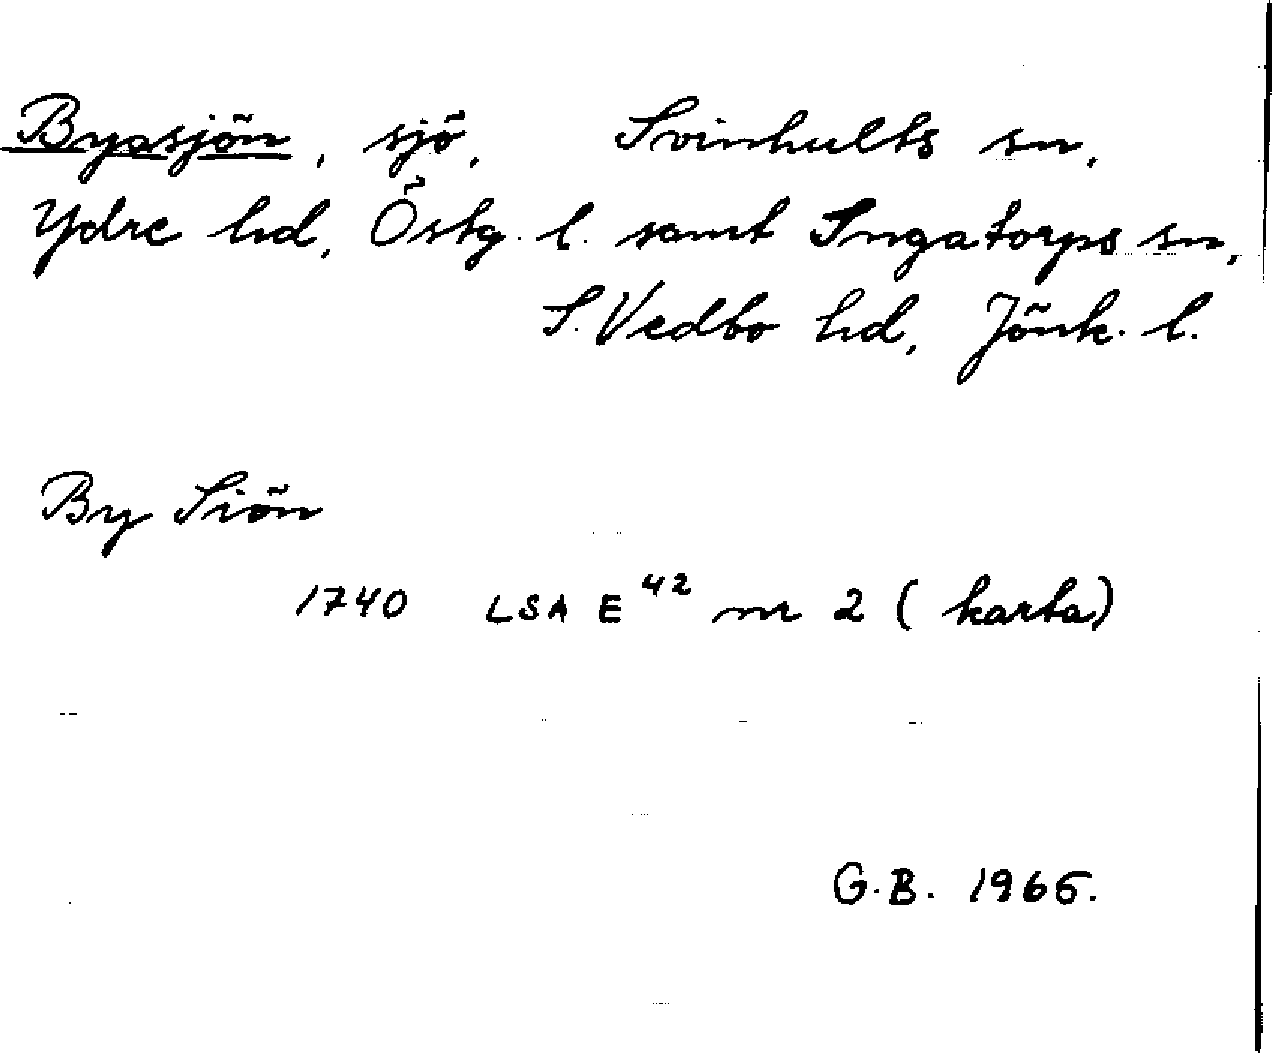 Byasjön, sjö, Svinhults sn,
Ydre hd, Östg. l. samt Ingatorps sn,
S. Vedbo hd, Jönk. l.
By Siön
1740 LSA E 42 nr 2 (karta)
G.B. 1966.